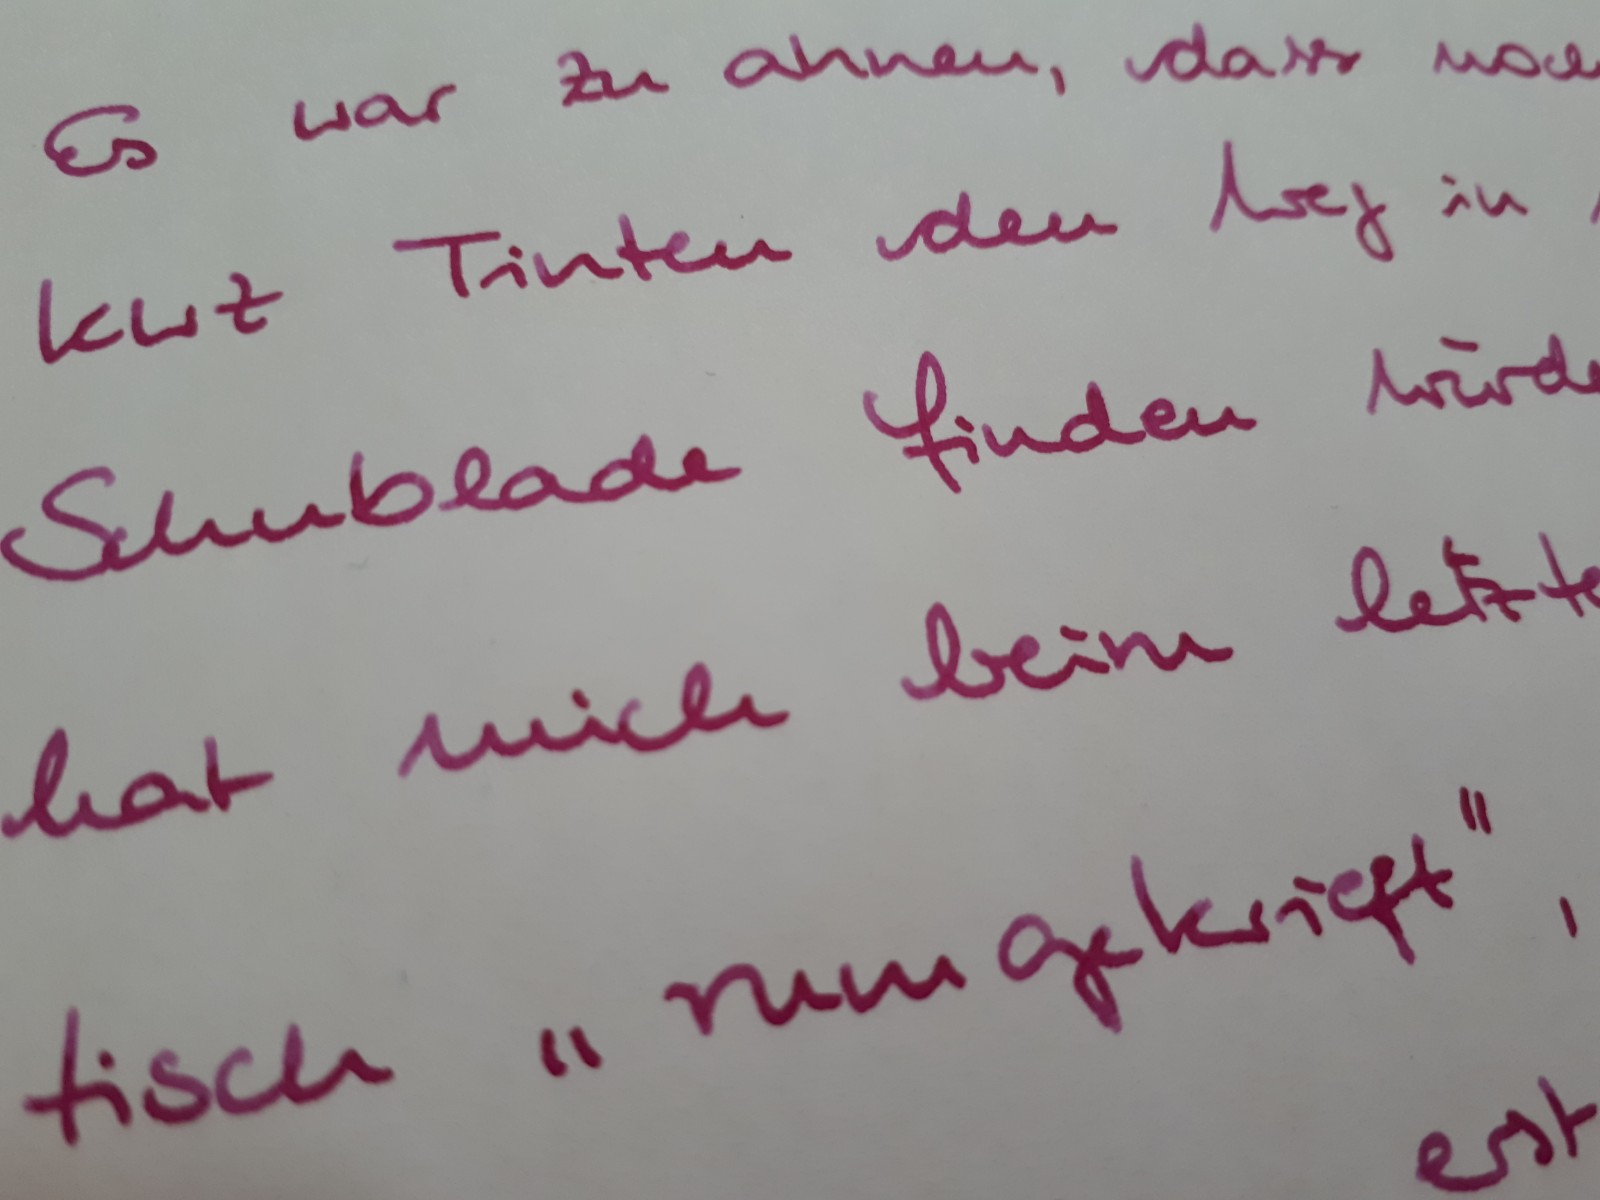 Es war zu ahnen, dass noch
kurz Tinten den Weg in
Schublade finden würde
hat mich beim letzte
tisch „rumgekriegt",
erst